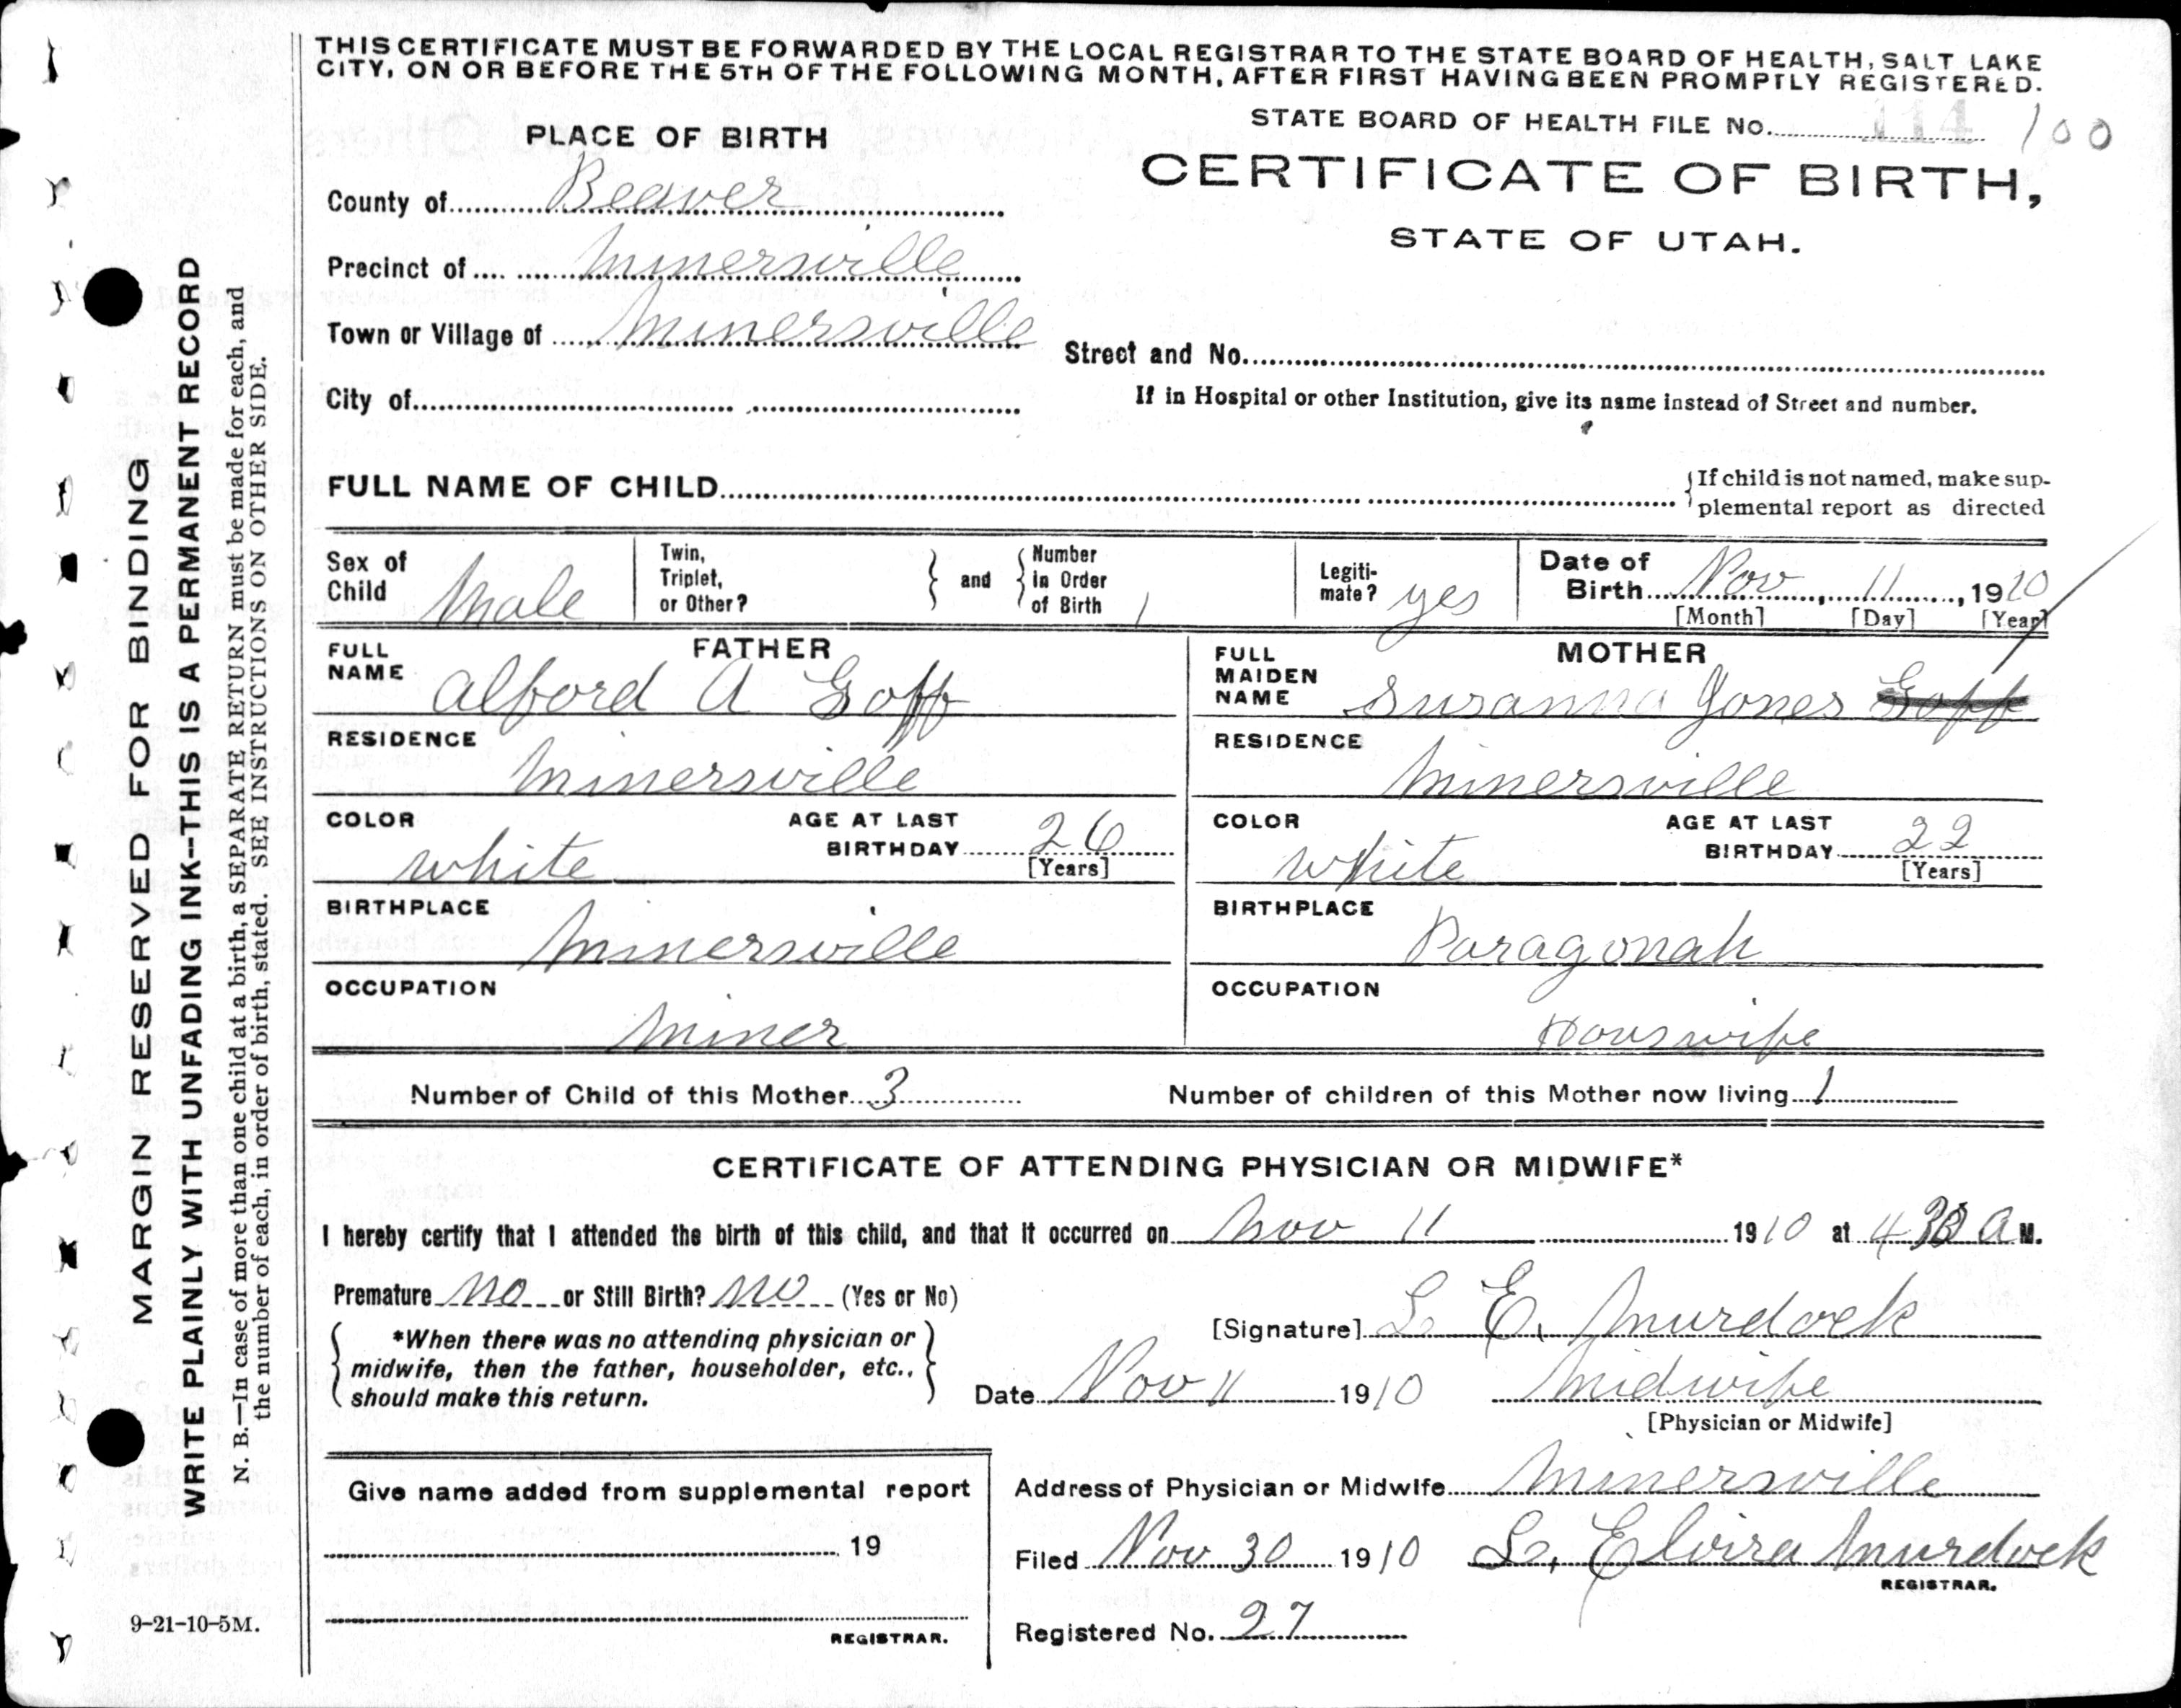 THIS CERTIFICATE MUST BE FORWARDED BY THE LOCAL REGISTRAR TO THE STATE BOARD OF HEALTH, SALT LAKE
CITY, ON OR BEFORE THE 5TH OF THE FOLLOWING MONTH, AFTER FIRST HAVING BEEN PROMPTLY REGISTERED.
STATE BOARD OF HEALTH FILE No. 114 100
PLACE OF BIRTH
CERTIFICATE OF BIRTH,
STATE OF UTAH.
County of Beaver
Precinct of Minersville
Town or Village of Minersville
Street and No.
City of
If in Hospital or other Institution, give its name instead of Street and number.
FULL NAME OF CHILD
If child is not named, make sup-
plemental report as directed
Sex of
Child Male
Twin,
Triplet,
or Other?
and
Number
in Order
of Birth 1
Legiti-
mate? yes
Date of
Birth Nov, 11, 1910
[Month] [Day] [Year]
FATHER
FULL
NAME Alford A Goff
RESIDENCE
Minersville
COLOR
white
AGE AT LAST
BIRTHDAY 26
[Years]
BIRTHPLACE
Minersville
OCCUPATION
Miner
MOTHER
FULL
MAIDEN
NAME Susanna Jones Goff
RESIDENCE
Minersville
COLOR
White
AGE AT LAST
BIRTHDAY 22
[Years]
BIRTHPLACE
Paragonah
OCCUPATION
Houswife
Number of Child of this Mother 3 Number of children of this Mother now living 1
CERTIFICATE OF ATTENDING PHYSICIAN OR MIDWIFE*
I hereby certify that I attended the birth of this child, and that it occurred on Nov 11 1910 at 4 30 A M.
Premature no or Still Birth? no (Yes or No)
*When there was no attending physician or
midwife, then the father, householder, etc.,
should make this return.
[Signature] L. E. Murdock
Date Nov 11 1910 Midwife
[Physician or Midwife]
Give name added from supplemental report
19
REGISTRAR.
Address of Physician or Midwife Minersville
Filed Nov 30 1910 L. Elvira Murdock
REGISTRAR.
Registered No. 27
MARGIN RESERVED FOR BINDING
WRITE PLAINLY WITH UNFADING INK--THIS IS A PERMANENT RECORD
N. B.—In case of more than one child at a birth, a SEPARATE RETURN must be made for each, and
the number of each, in order of birth, stated. SEE INSTRUCTIONS ON OTHER SIDE.
9-21-10-5M.